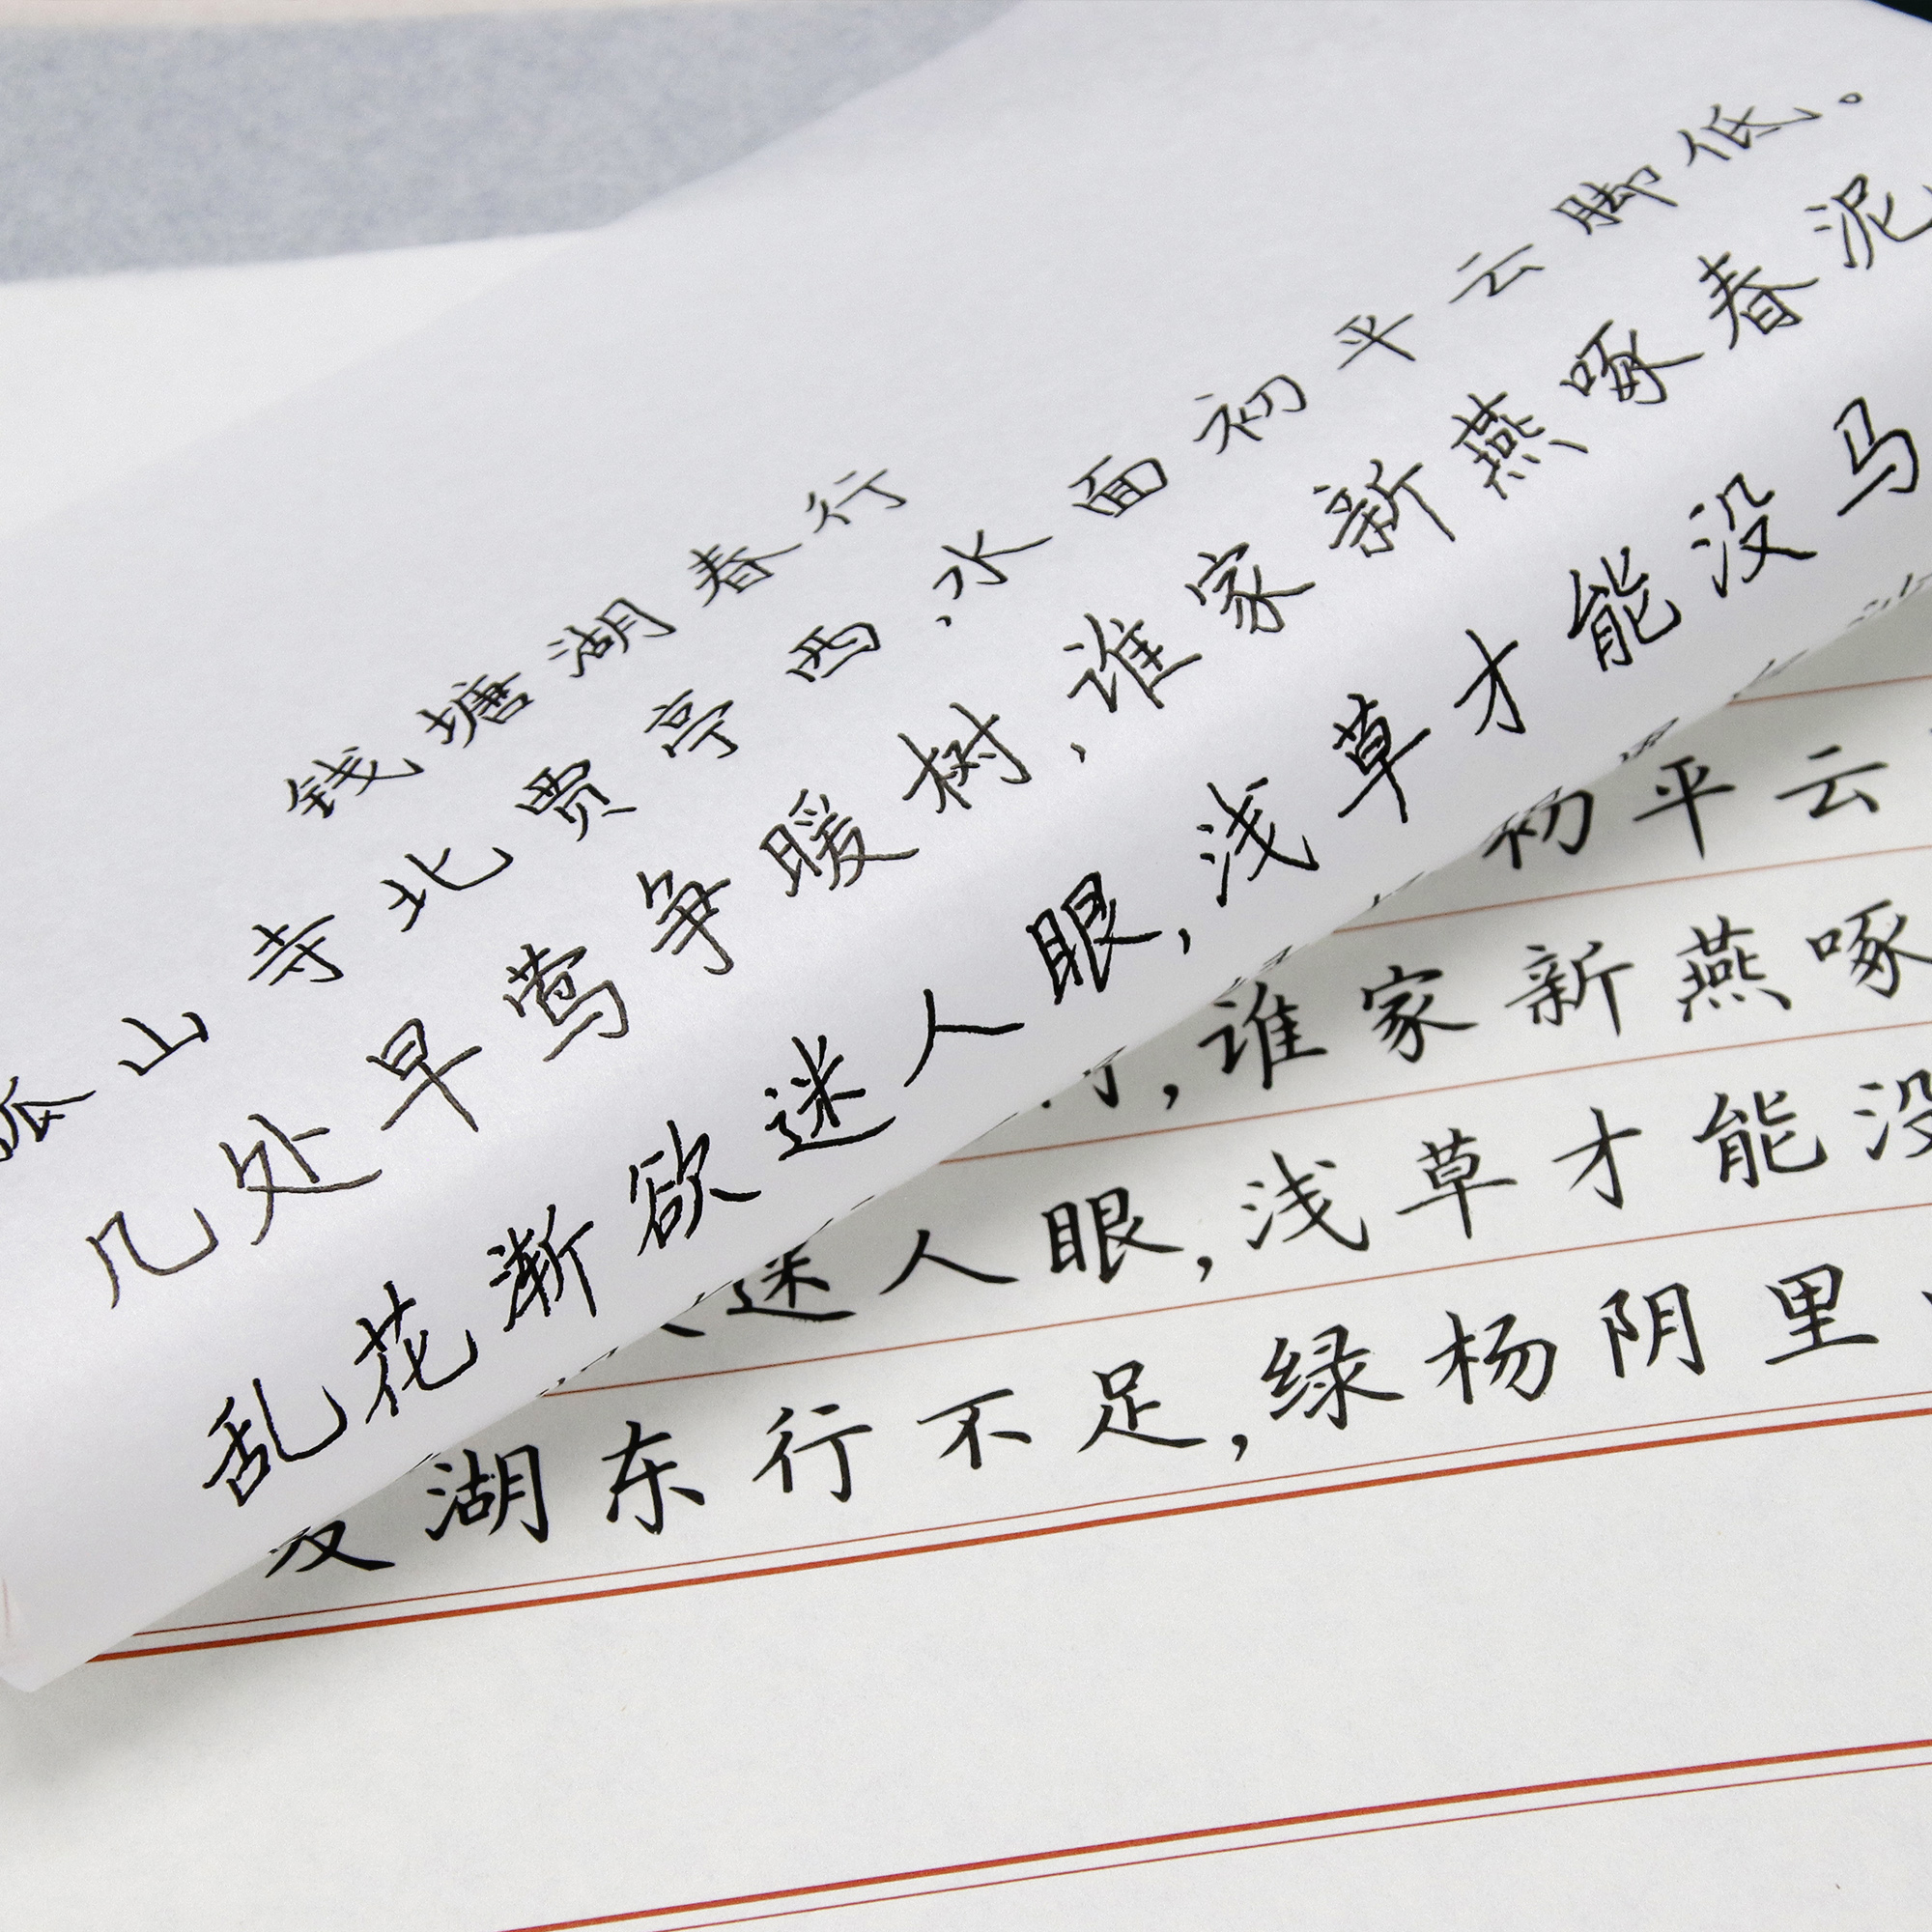 钱塘湖春行
孤山寺北贾亭西,水面初平云脚低。
几处早莺争暖树,谁家新燕啄春泥
乱花渐欲迷人眼,浅草才能没马
初平云
,谁家新燕啄
迷人眼,浅草才能没
湖东行不足,绿杨阴里